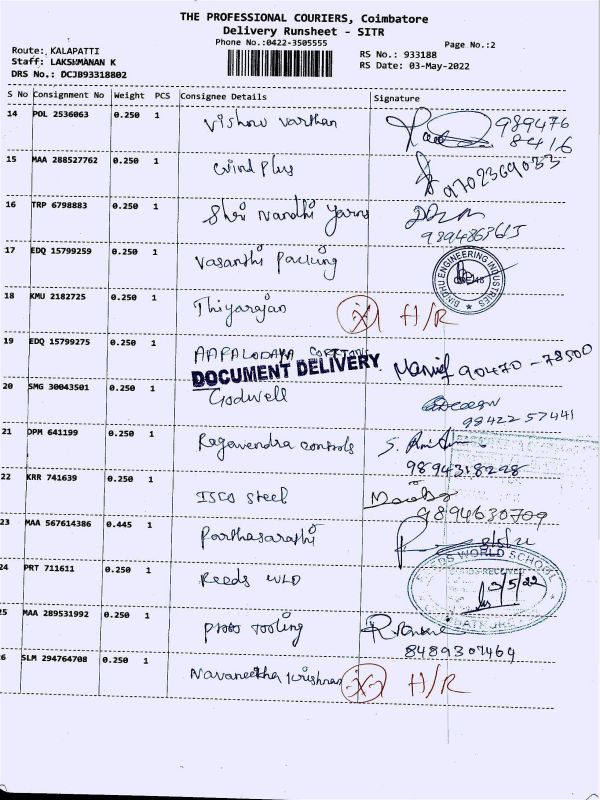 THE PROFESSIONAL COURIERS, Coimbatore
Delivery Runsheet - SITR
Phone No.:0422-3505555
Page No.:2
Route: KALAPATTI
Staff: LAKSHMANAN K
DRS No.: DCJB93318802
RS No.: 933188
RS Date: 03-May-2022
S No Consignment No Weight PCS Consignee Details Signature
14 POL 2536063 0.250 1 Vishnu Varthan 989476
8416
15 MAA 288527762 0.250 1 Wind Plus 9702369033
16 TRP 6798883 0.250 1 Shri Nandhi Yarns
17 EDQ 15799259 0.250 1 Vasanthi Packing
BINDHU ENGINEERING INDUSTRIES
18 KMU 2182725 0.250 1 Thiyarajan H/R
19 EDQ 15799275 0.250 1
DOCUMENT DELIVERY 90470-78500
20 SMG 30043501 0.250 1 Godwell
98422 57441
21 DPM 641199 0.250 1 Ragavendra controls
9894318228
22 KRR 741639 0.250 1 ISCO Steel
9894630709
23 MAA 567614386 0.445 1 Parthasarathi
24 PRT 711611 0.250 1 Reeds WLD
REEDS WORLD SCHOOL
3/5/22
COIMBATORE
25 MAA 289531992 0.250 1 Proto Tooling
8489307469
26 SLM 294764708 0.250 1 Navaneetha Krishnan H/R